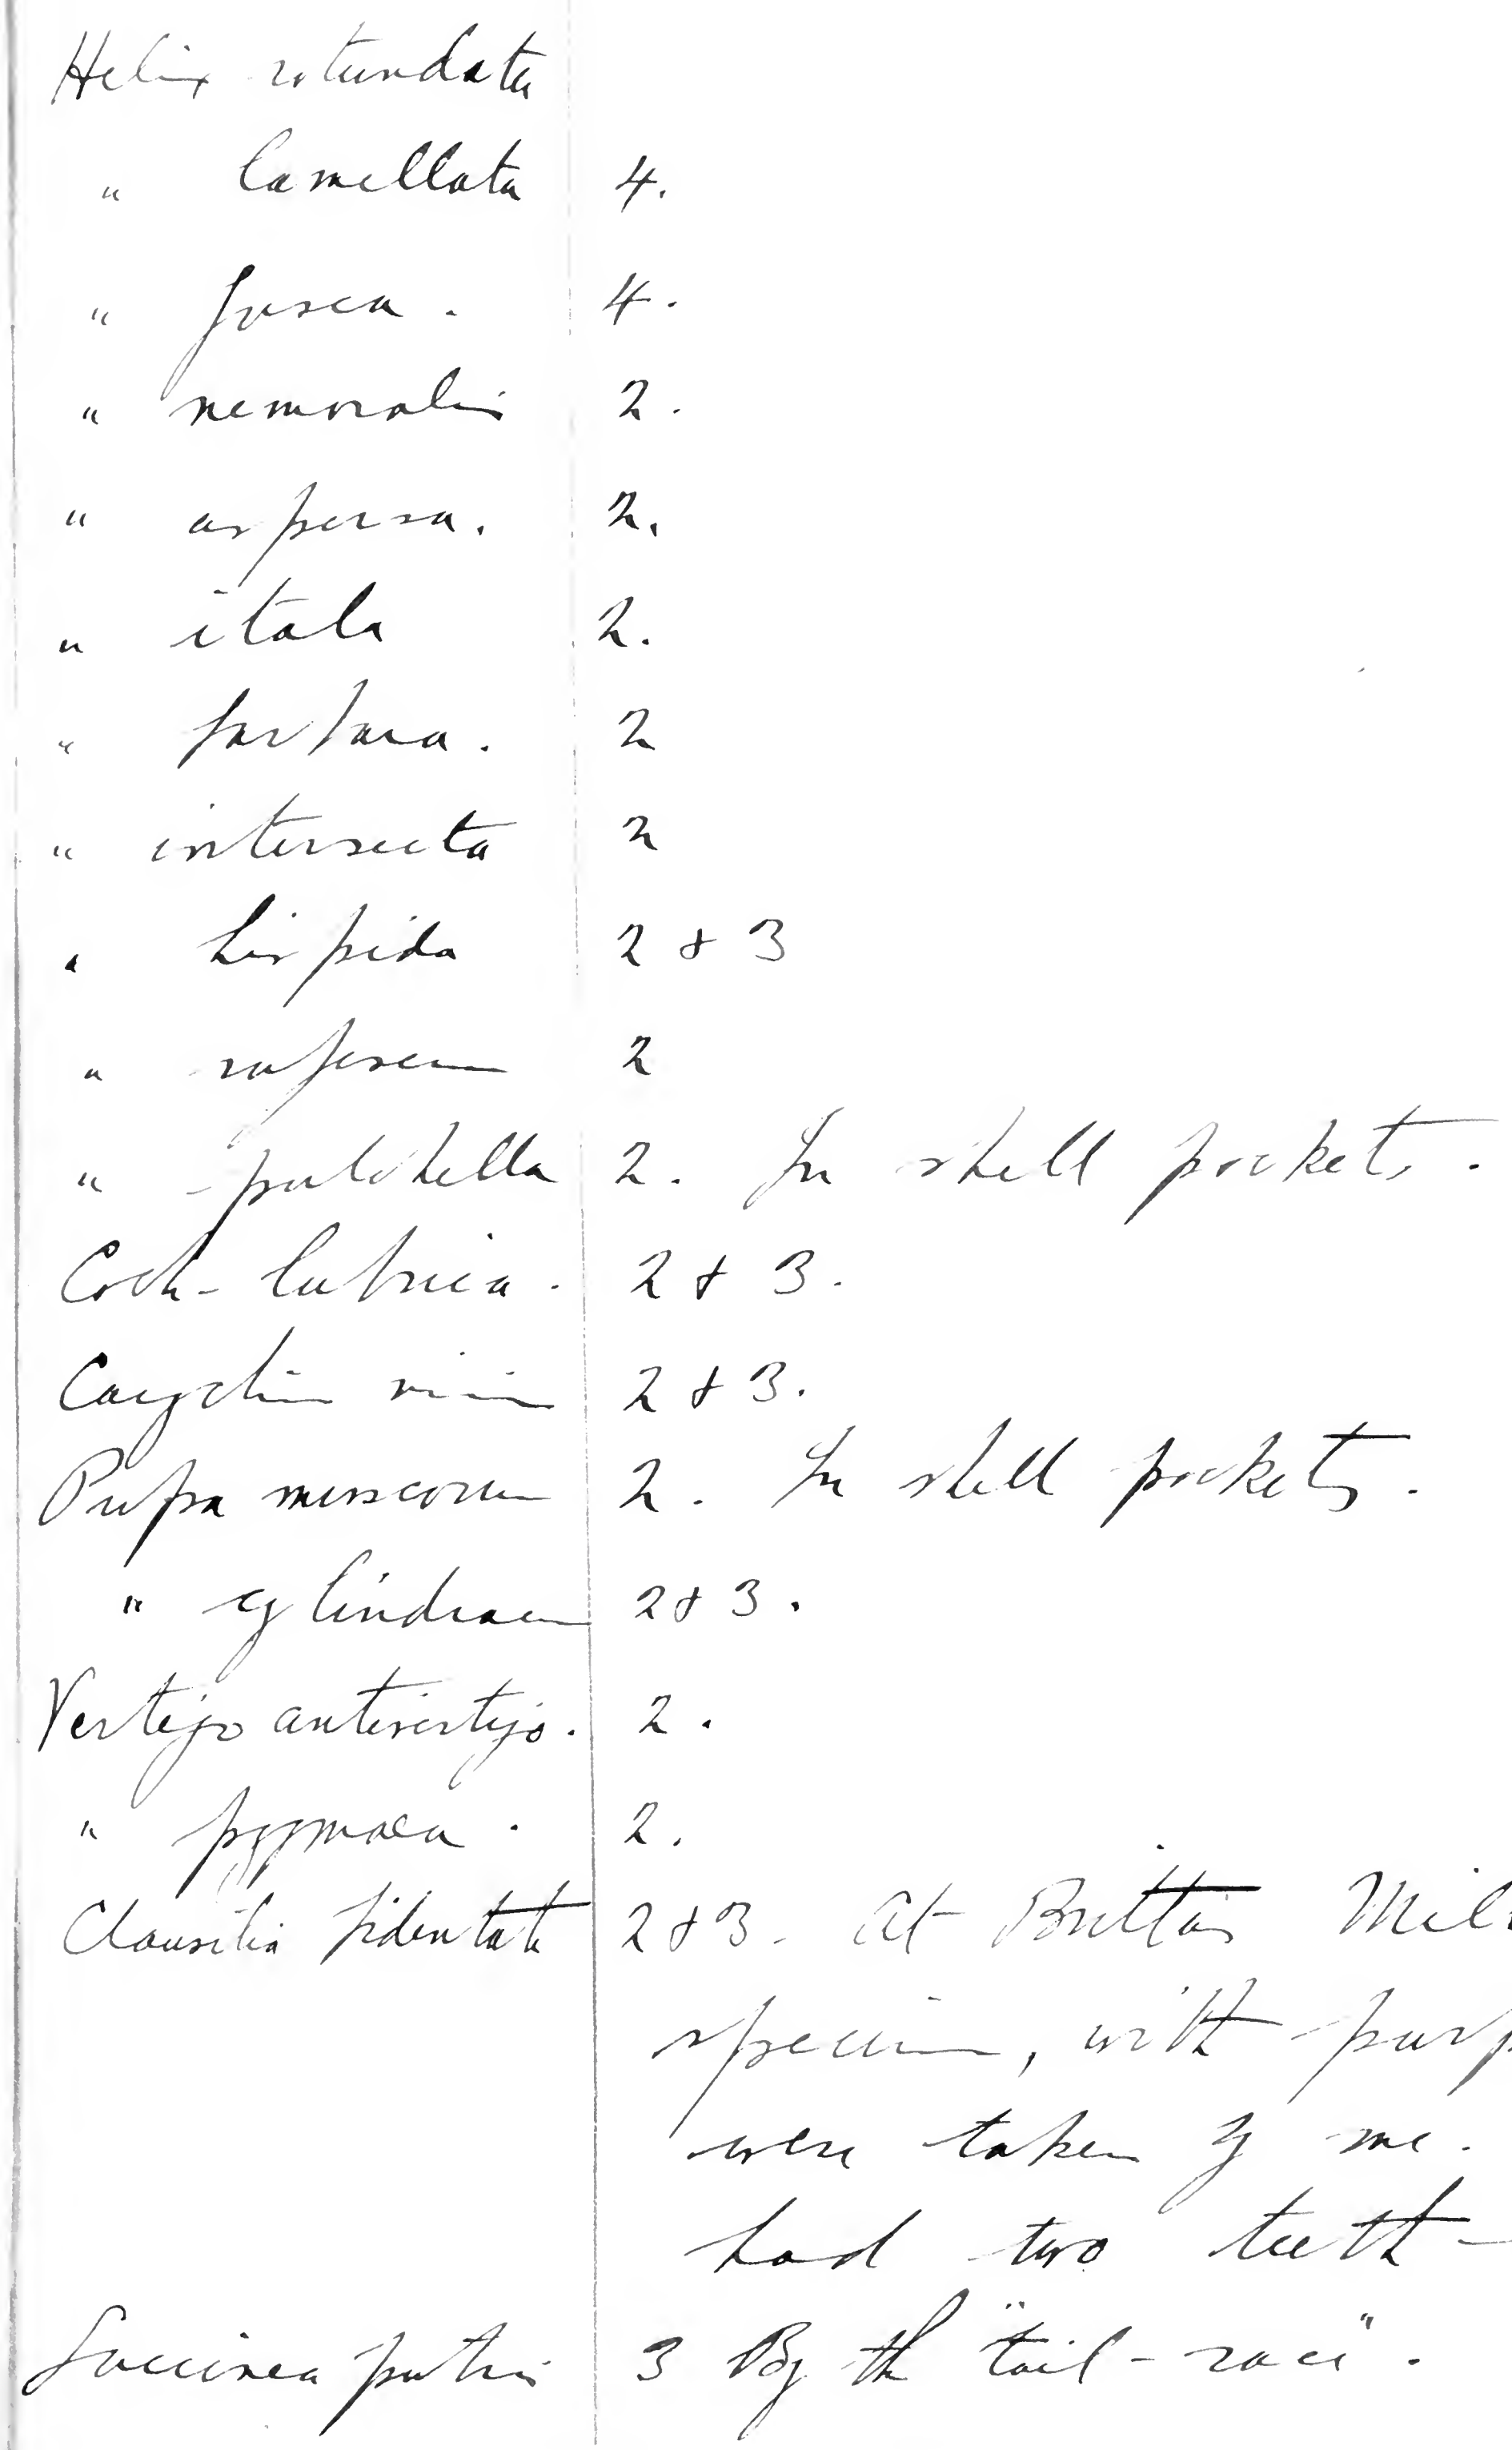 Helix rotundata
" lamellata 4.
" fusca. 4.
" nemoralis 2.
" aspersa. 2.
" itala 2.
" barbara. 2
" intersecta 2
" hispida 2 & 3
" rufescens 2
" pulchella 2. In shell pockets.
Coch- lubrica. 2 & 3.
Carychium min 2 & 3.
Pupa muscorum 2. In shell pockets.
" cylindracea 2 & 3.
Vertigo antivertigo. 2.
" pygmaea. 2.
Clausilia bidentata 2 & 3. At Brittas Mil
specimens, with purp
were taken by me.
had two teeth -
Succinea putris 3 By the "tail-race".